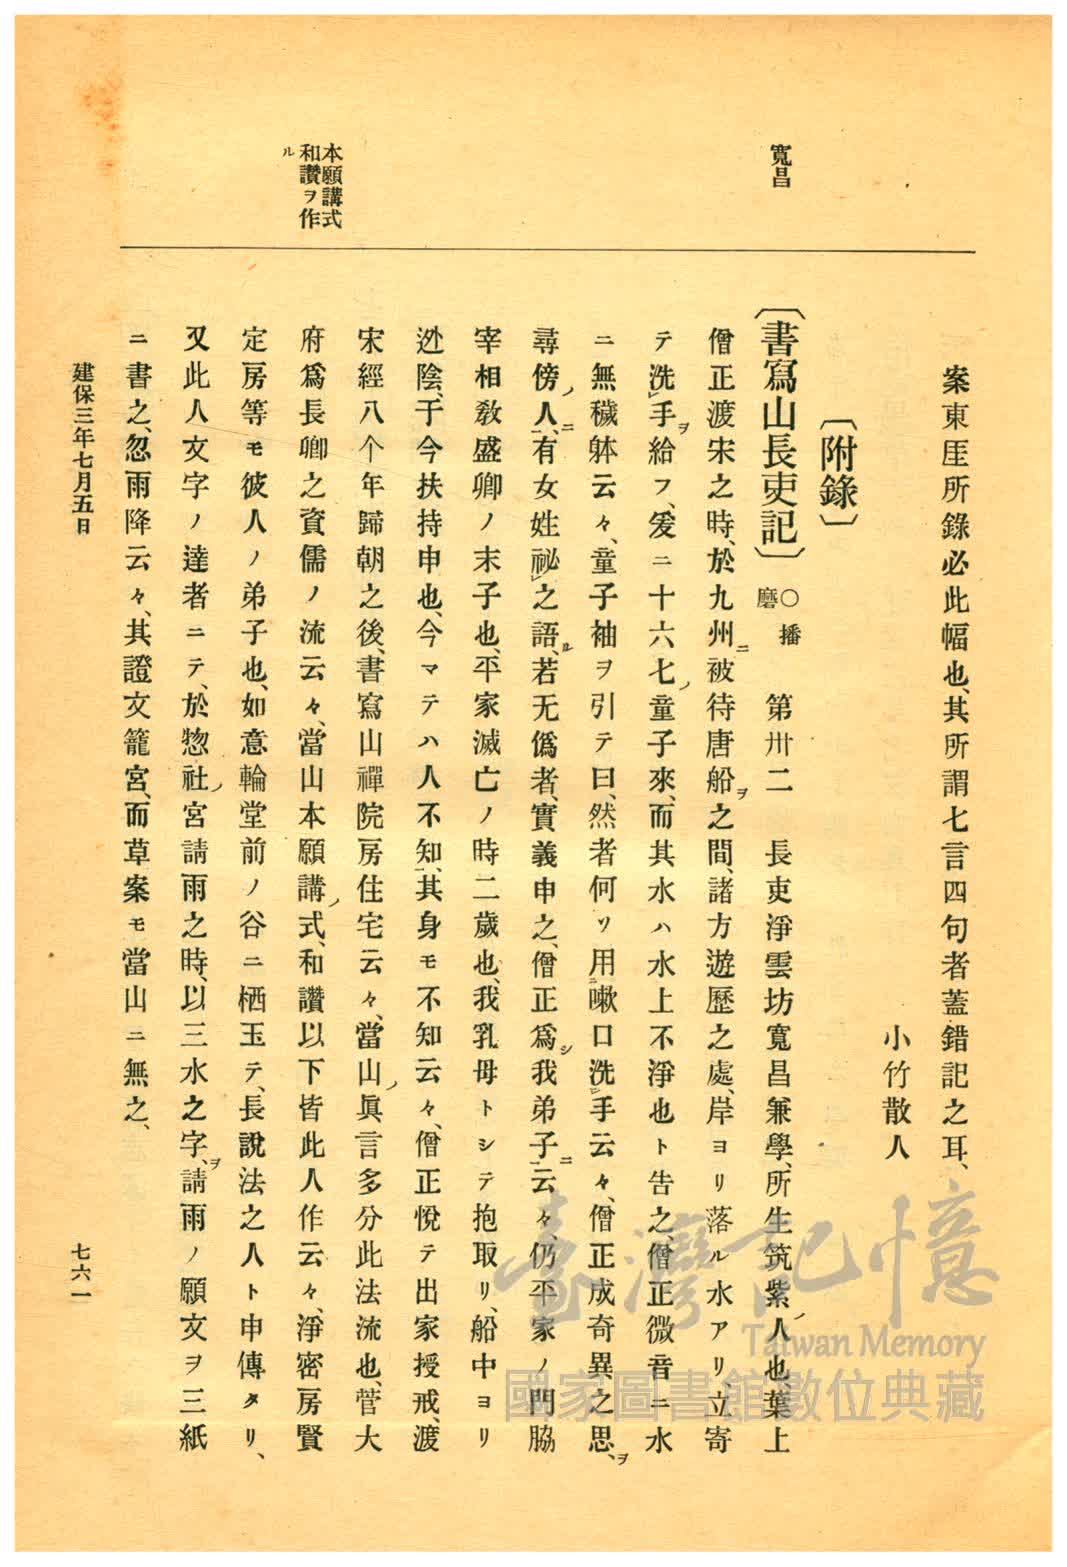 案東厓所錄必此幅也、其所謂七言四句者蓋錯記之耳、
小竹散人
〔附錄〕
寬昌
〔書寫山長吏記〕 〇播磨 第卅二 長吏淨雲坊寬昌兼學、所生筑紫ノ人也、葉上
僧正渡宋之時、於九州ニ被待唐船ヲ之間、諸方遊歷之處、岸ヨリ落ル水アリ、立寄
テ洗手ヲ給フ、爰ニ十六七ノ童子來、而其水ハ水上不淨也ト告之、僧正微音ニ水
ニ無穢躰云々、童子袖ヲ引テ曰、然者何ソ用ニ嗽口洗手云々、僧正成奇異之思ヲ、
尋傍ノ人ニ、有女姓祕之語ル、若无僞者、實義申之、僧正爲シ我弟子ニ云々、仍平家ノ門脇
宰相敎盛卿ノ末子也、平家滅亡ノ時二歲也、我乳母トシテ抱取リ、船中ヨリ
迯陰、于今扶持申也、今マテハ人不知、其身モ不知云々、僧正悅テ出家授戒、渡
宋經八个年歸朝之後、書寫山禪院房住宅云々、當山ノ眞言多分此法流也、菅大
本願講式
和讚ヲ作
ル
府爲長卿之資儒ノ流云々、當山本願講ノ式、和讚以下皆此人作云々、淨密房賢
定房等モ彼人ノ弟子也、如意輪堂前ノ谷ニ栖玉テ、長說法之人ト申傳タリ、
又此人文字ノ達者ニテ、於惣社ノ宮請雨之時、以三水之字ヲ、請雨ノ願文ヲ三紙
ニ書之、忽雨降云々、其證文籠宮、而草案モ當山ニ無之、
建保三年七月五日
七六一
臺灣記憶
Taiwan Memory
國家圖書館數位典藏